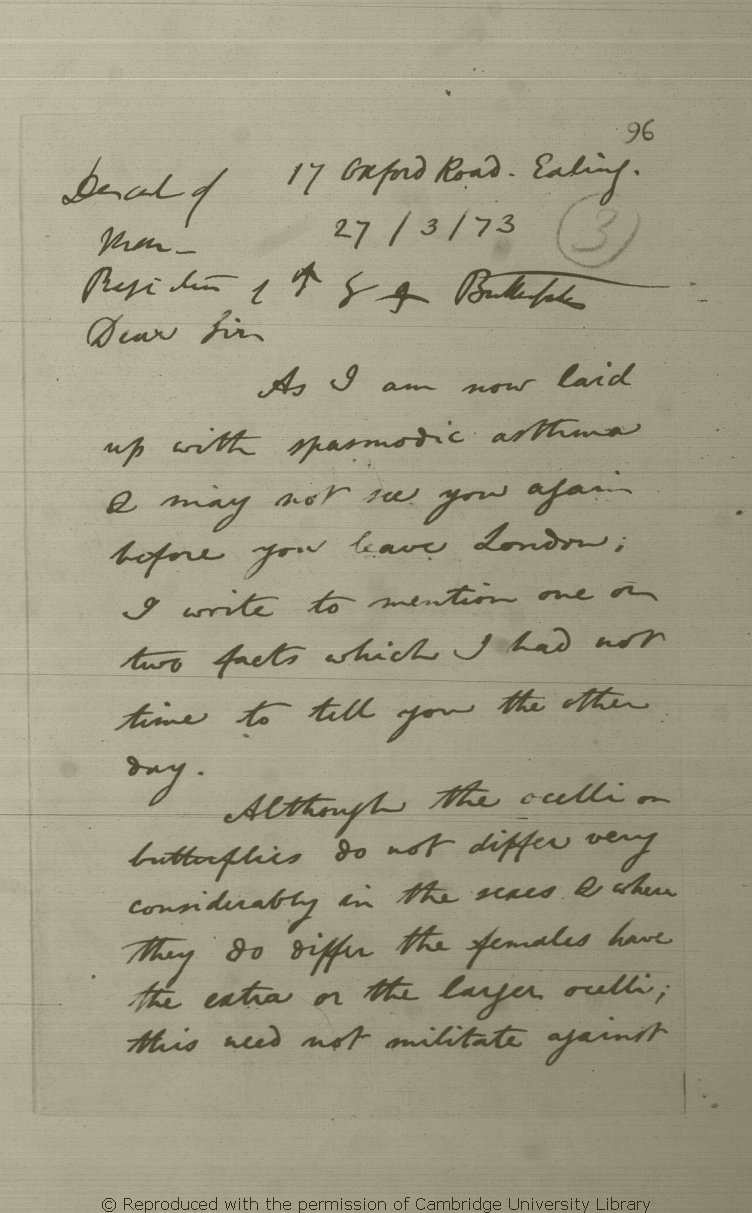 96
17 Oxford Road. Ealing.
Descent of
27/3/73
Man –
3
of ♂ & ♀ Butterflies
Dear Sir
As I am now laid
up with spasmodic asthma
& may not see you again
before you leave London;
I write to mention one or
two facts which I had not
time to tell you the other
day.
Although the ocelli on
butterflies do not differ very
considerably in the sexes & when
they do differ the females have
the extra or the larger ocelli;
this need not militate against
© Reproduced with the permission of Cambridge University Library